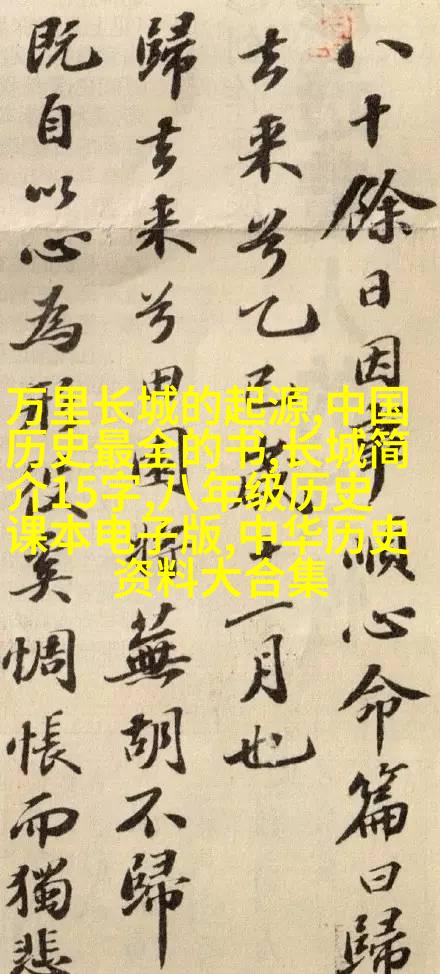 八十餘日因事順心命篇曰歸
去来兮乙巳歲十一月也
歸去来兮田園將蕪胡不歸
既自以心為形役奚惆悵而獨悲
万里长城的起源,中国
历史最全的书,长城简
介15字,八年级历史
课本电子版,中华历史
资料大合集